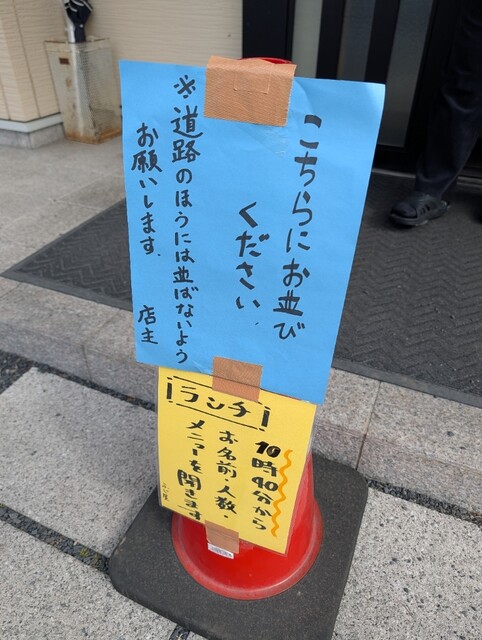 こちらにお並び
ください.
※道路のほうには並ばないよう
お願いします. 店主
ランチ
10時40分から
お名前・人数・
メニューを聞きます